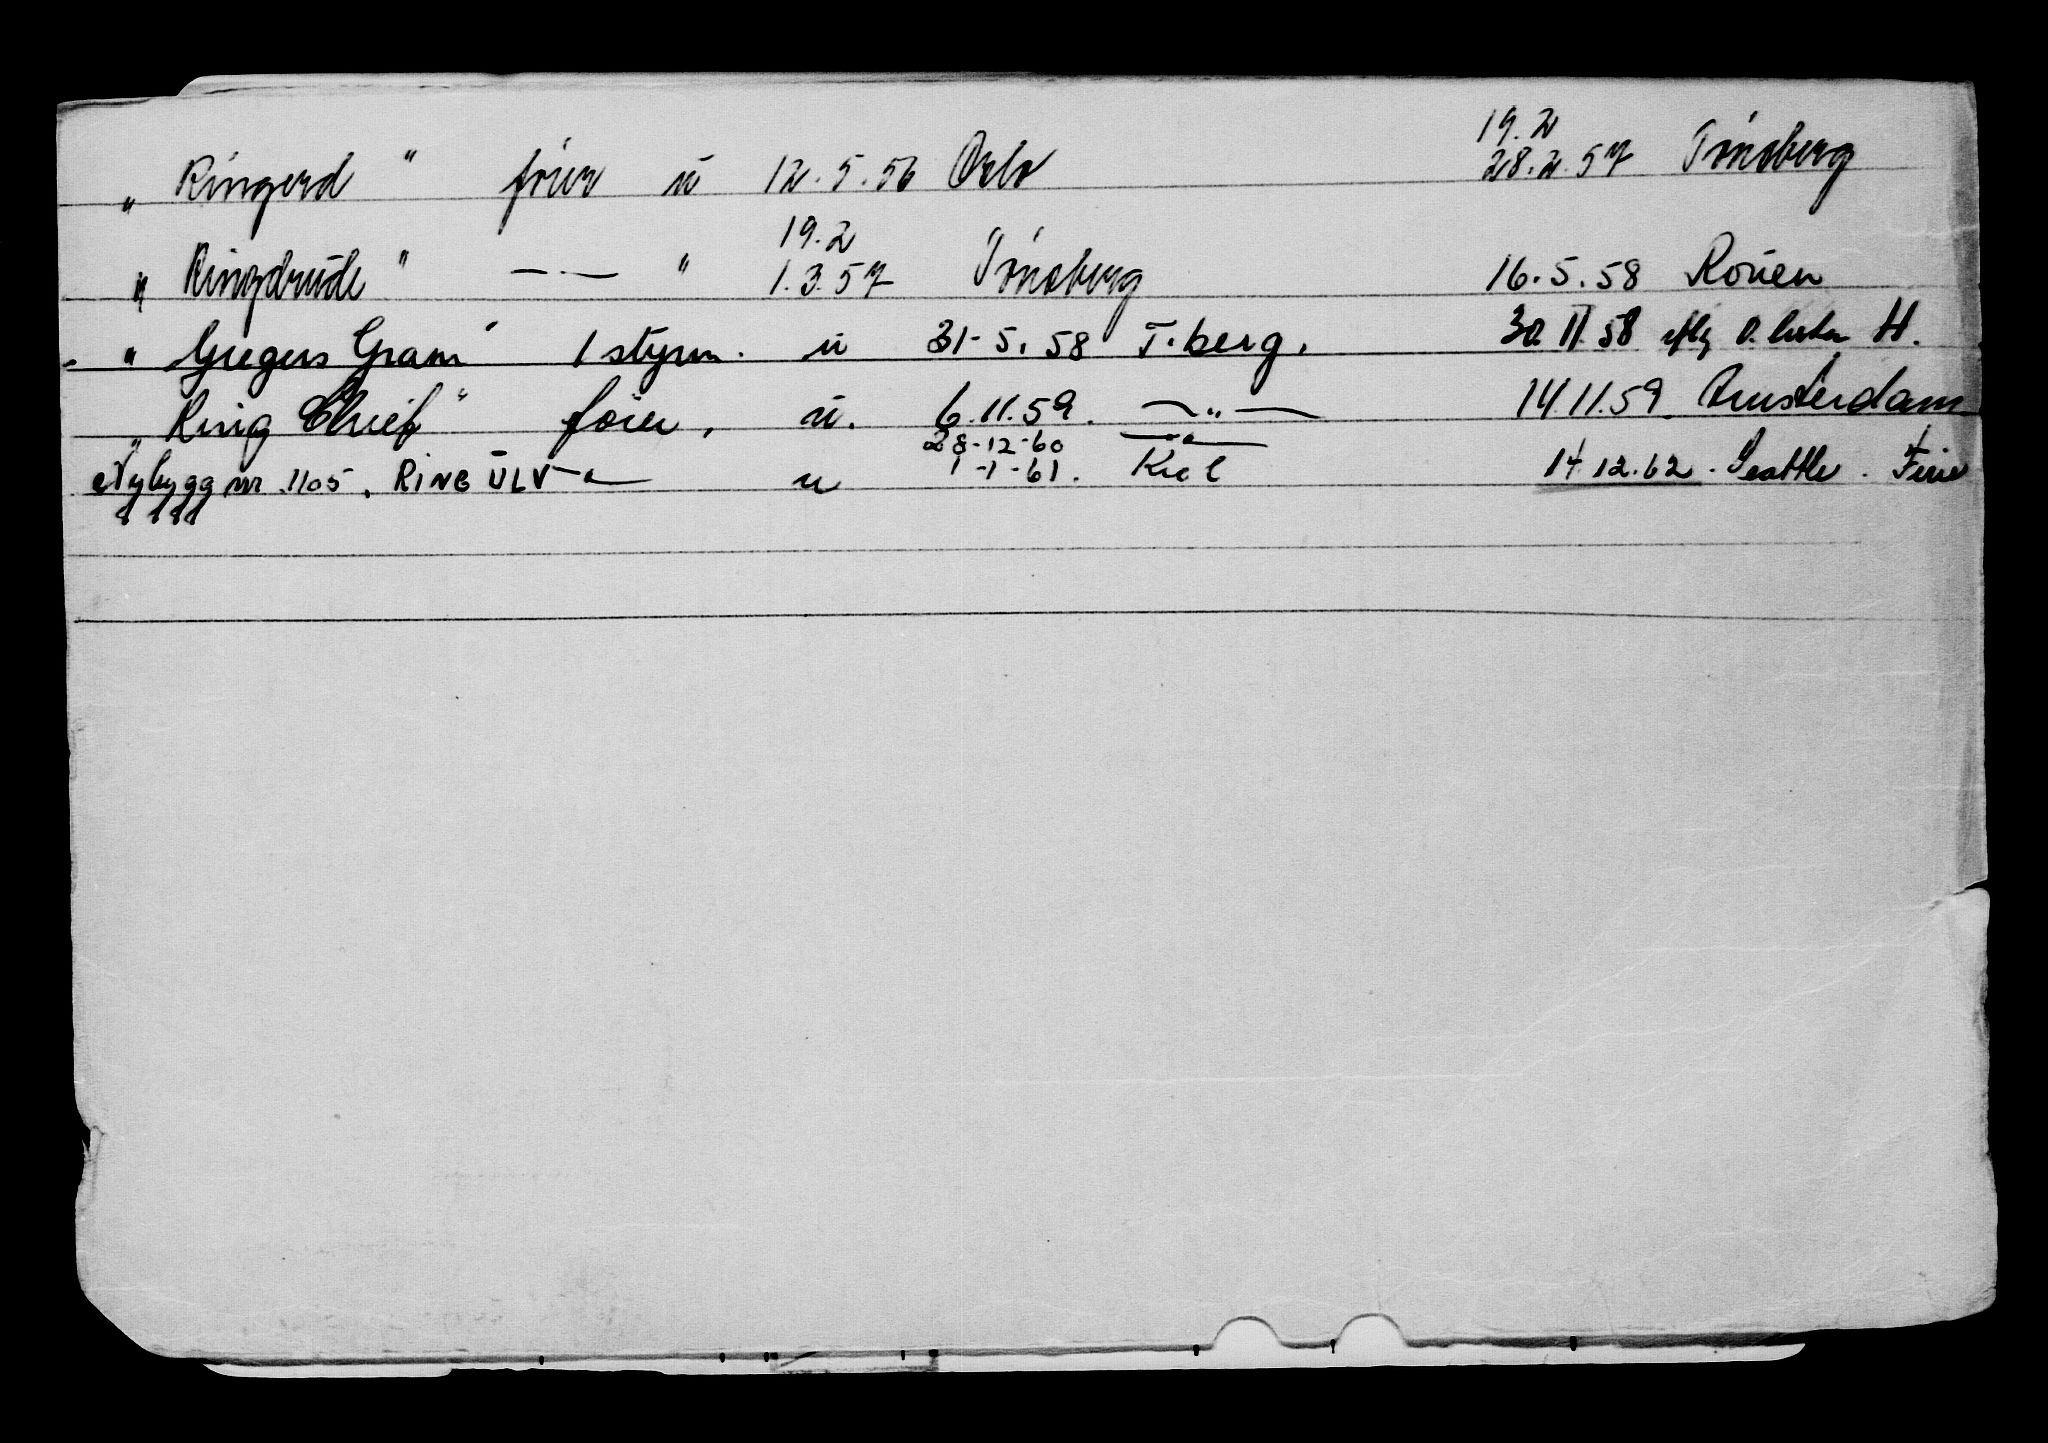 19.2
„ Ringerd " fører u 12.5.56 Oslo 28.2.57 Tønsberg
19.2
„ Ringdrude " —"— " 1.3.57 Tønsberg 16.5.58 Rouen
„ Gregers Gram" 1 styrm. u 31-5.58 T.berg. 30.11.58 H.
„ Ring Chief" fører, u. 6.11.59. —"— 14.11.59. Amsterdam
28-12-60 —"—
Nybygg nr. 1105. RING ULV —"— u 1-1-61. Kiel 14.12.62. Seattle. Ferie